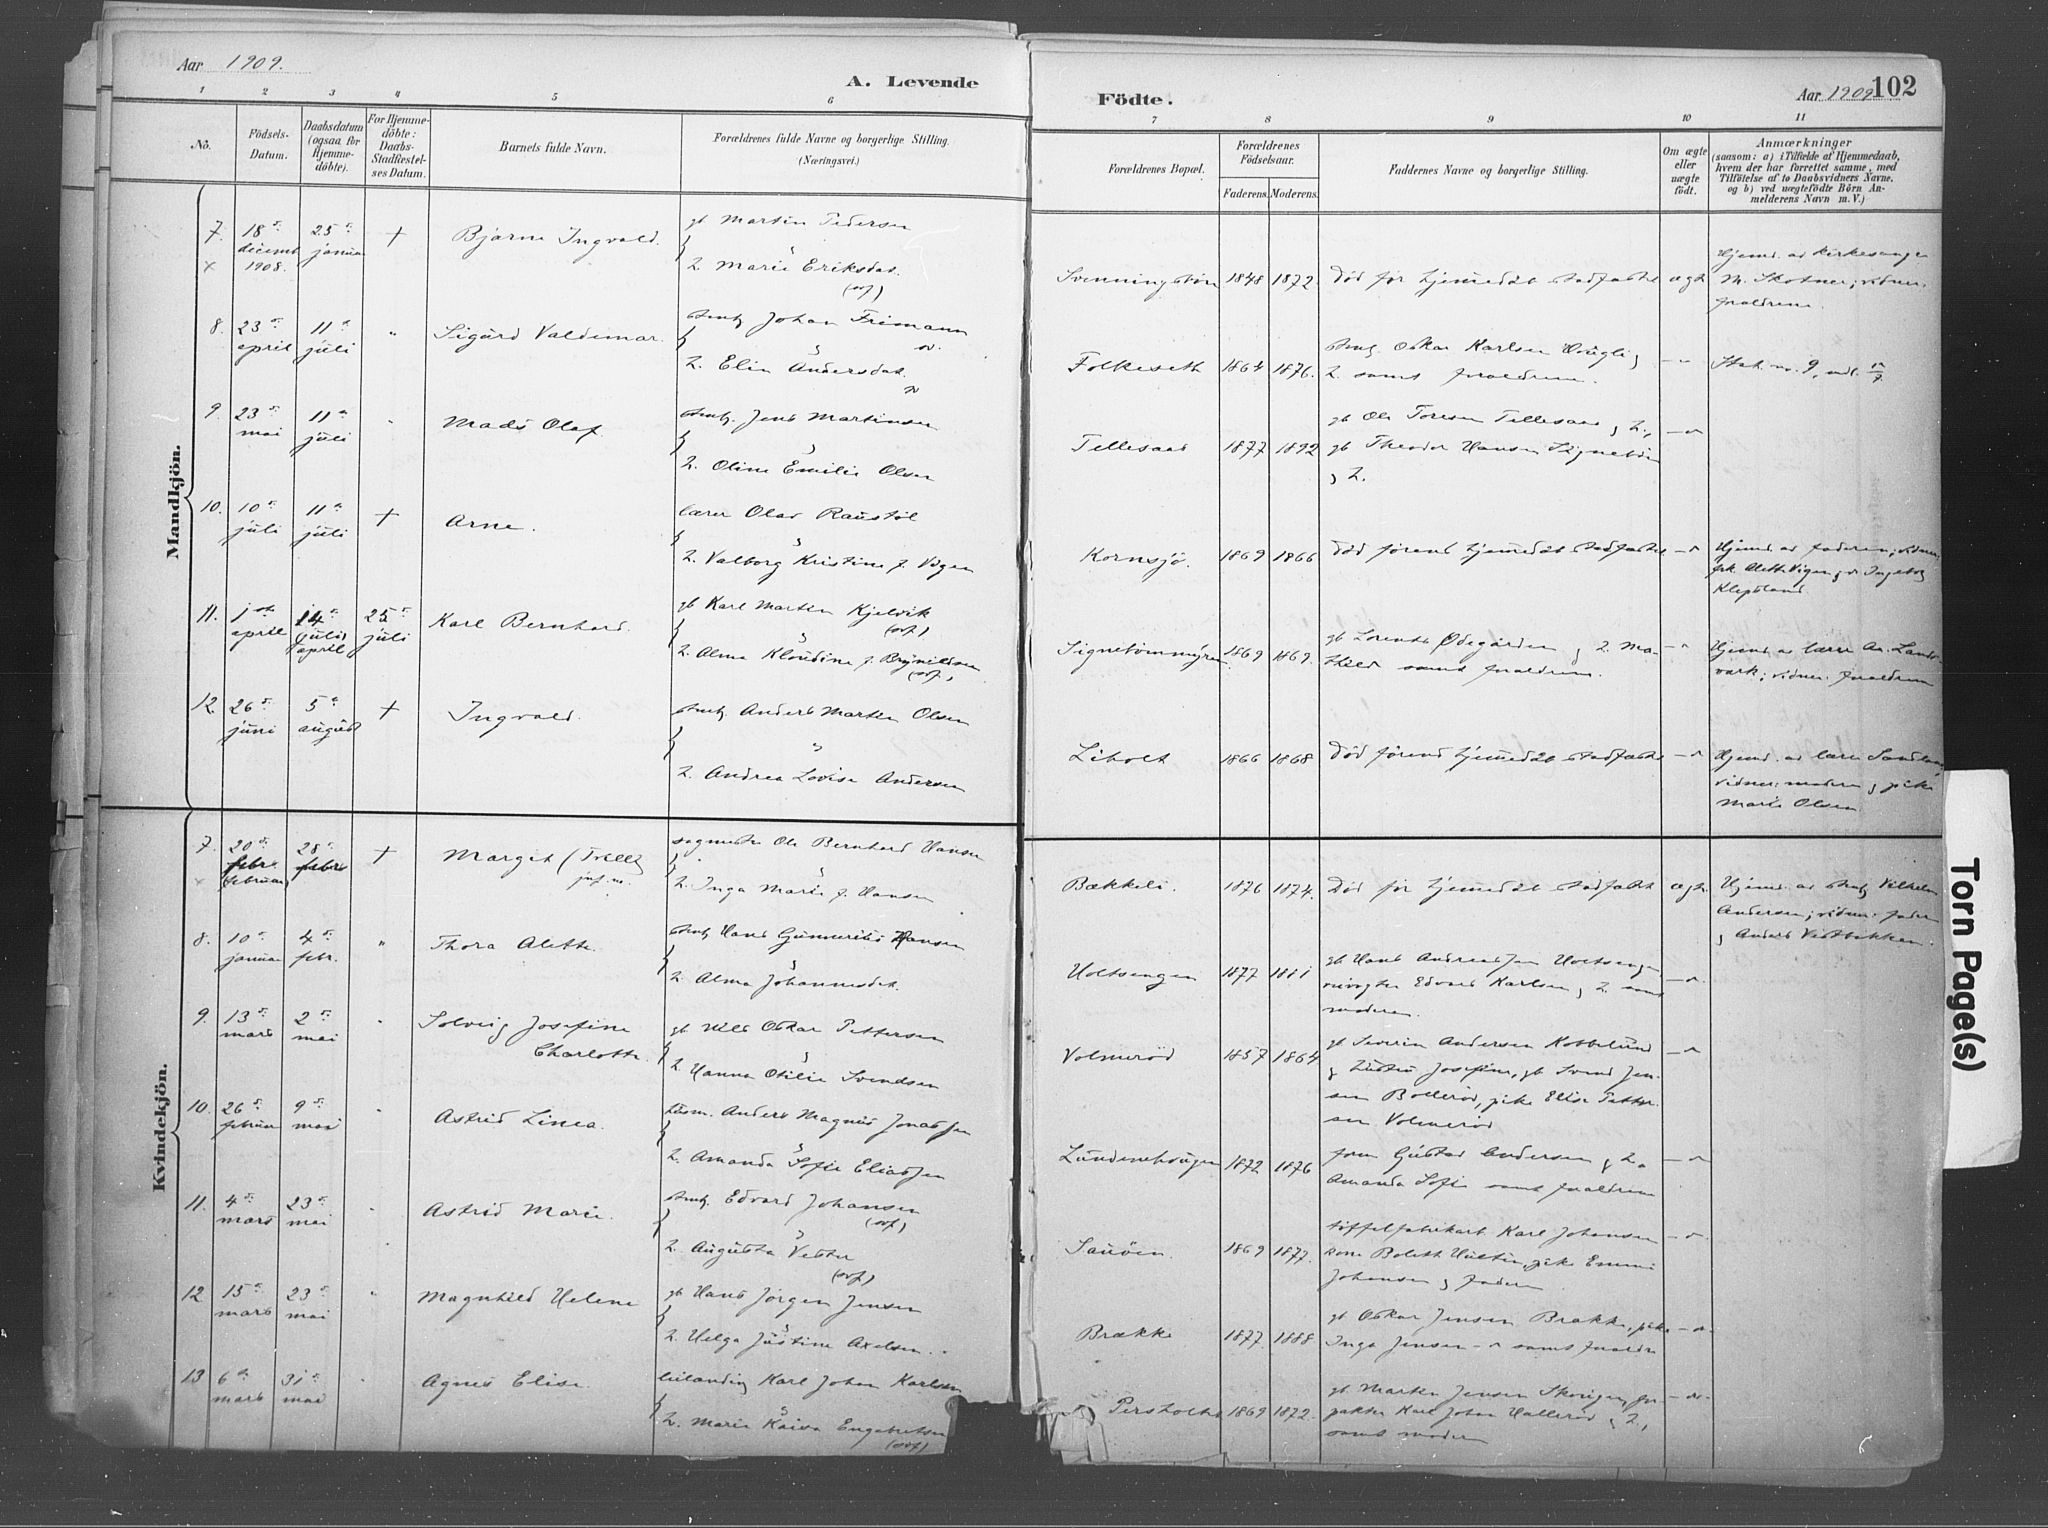 Aar 1909.
A. Levende
Födte.
Aar 1909.
102
1 2 3 4 5 6 7 8 9 10 11
No.
Födsels-Datum.
Daabsdatum (ogsaa for Hjemme-döbte).
For Hjemme-döbte: Daabs-Stadfæstel-ses Datum.
Barnets fulde Navn.
Forældrenes fulde Navne og borgerlige Stilling. (Næringsvei.)
Forældrenes Bopæl.
Forældrenes Födselsaar.
Faderens. Moderens.
Faddernes Navne og borgerlige Stilling.
Om ægte eller uægte födt.
Anmærkninger
(saasom: a) i Tilfælde af Hjemmedaab,
hvem der har forrettet samme, med
Tilföielse af to Daabsvidners Navne,
og b) ved uægtefödte Börn An-
melderens Navn m. V.)
Mandkjön.
7. 18 decemb 1908. 25 januar + Bjarne Ingvald. gb Martin Pedersen
h. Marie Eriksdat.
Svenningsbøn 1848 1872. Død før hjemmedåb stadfæstet ægt.
Hjemd. av kirkesanger
M. Skotner; vidner:
foraldrene.
8. 23 april 11 juli " Sigurd Valdemar. Johan Frimann
h. Elin Andersdat.
Folkeseth 1864 1876. Oskar Karlsen
h. samt foraldrene.
9. 23 mai 11 juli " Mads Olaf. Jens Martinsen
h. Oline Emilie Olsen
Tellesaas 1877 1892 gb Ole Toresen Tellesaas & h.,
gb Theodor Hansen
& h.
10. 10 juli 11 juli + Arne. lærer Olav Raustøl
h. Valborg Kristine f. Vigen
Kornsjø. 1869 1866 Død førend hjemmedåb stadfæstet
Hjemd. av faderen; vidner:
frk. Aleth Vigen & Ingeborg
Klepsland.
11. 1 april 14 (juli) april 25 juli Karl Bernhard. gb Karl Martin Kjelvik
h. Alma Klaudine f. Brynildsen
Signebømmyren 1869 1869. gb Lorents Ødegården & h. Ma-
thild samt foraldrene.
Hjemd. av lærer An. Lands-
værk; vidner: foraldrene
12. 26 juni 5 august + Ingvald. Anders Martin Olsen
h. Andrea Lovise Andersen
Liholt 1866 1868 Død førend hjemmedåb stadfæstet
Hjemd. av lærer
vidner: moderen & pike
Marie Olsen.
Kvindekjön.
7. 20 febr (februar) 28 febr + Margit sagmester Ole Bernhard Hansen
h. Inga Marie f. Hansen
Bækkeli. 1876 1874. Død før hjemmedåb stadfæstet ægt.
Hjemd. av Vilhelm
Andersen; vidner: fader
& Anders Vestbakken.
8. 10 januar 4 febr. " Thora Alette. Hans Gunnerius Hansen
h. Alma Johannesdat.
Holtsengen 1877 1881 gb Hans Andreassen Holtsengen
Edvard Karlsen & h. samt
moderen.
9. 13 mars 2 mai " Solveig Josefine
Charlotte. gb Nils Oskar Pettersen
h. Hanna Otilie Svendsen
Volmerød 1857 1864 gb Severin Andersen Kobbelund
& hustru Josefine, gb Svend Jen-
sen Bollerød, pike Elise Petter-
sen Volmerød
10. 26 februar 9 mai " Astrid Linea. husm. Anders Magnus Jonassen
h. Amanda Sofie Eliassen
Lundenehaugen 1872 1876 Gustav Andersen & h.
Amanda Sofie samt foraldrene
11. 4 mars 23 mai " Astrid Marie. Edvard Johansen
h. Augusta Vester
Sauøen. 1869 1877. tøffelfabrikart Karl Johansen
kone Boleth Hultin, pike Emma
Johansen & faderen
12. 15 mars 23 mai " Magnhild Helene gb Hans Jørgen Jensen
h. Helga Justine Axelsen
Brække 1877. 1888 gb Oskar Jensen Brække, pike
Inga Jensen samt foraldre
13 6 mars 31 mai Agnes Elise. leilænding Karl Johan Karlsen
h. Marie Kaisa Engebretsen
Persholt 1869 1872. gb Martin Jensen Skougen, for-
pakter Karl Johan Hallerød & h.,
samt moderen
Torn Page(s)